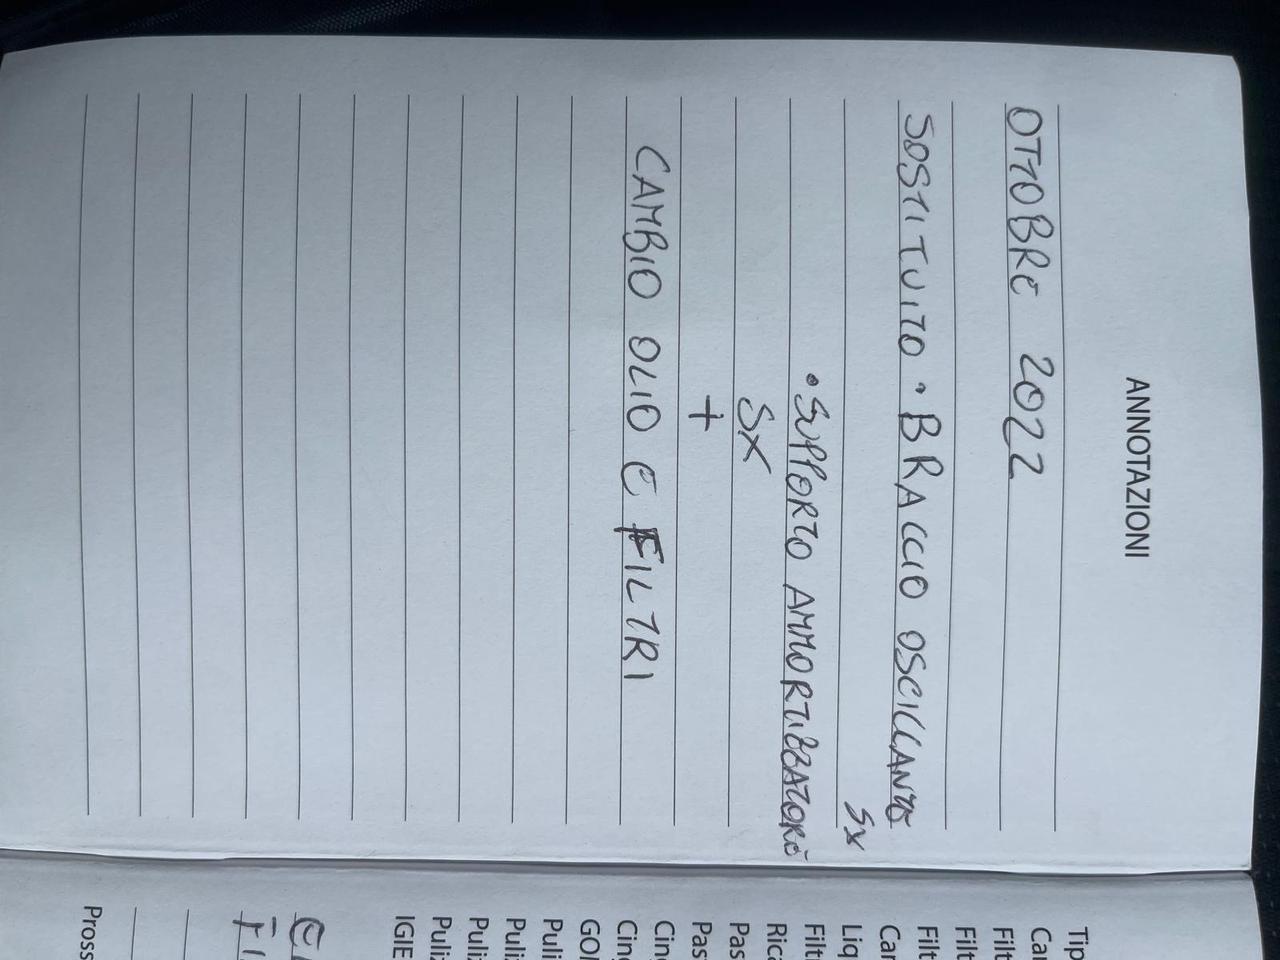 ANNOTAZIONI
OTTOBRE 2022
SOSTITUITO • BRACCIO OSCILLANTE
SX
• SUPPORTO AMMORTIZZATORE
SX
+
CAMBIO OLIO E FILTRI
Tip
Car
Filt
Filt
Filt
Car
Liq
Filt
Rica
Pas
Pas
Cing
Cing
GOI
Puli
Puliz
Puliz
Puliz
IGIE
Pross